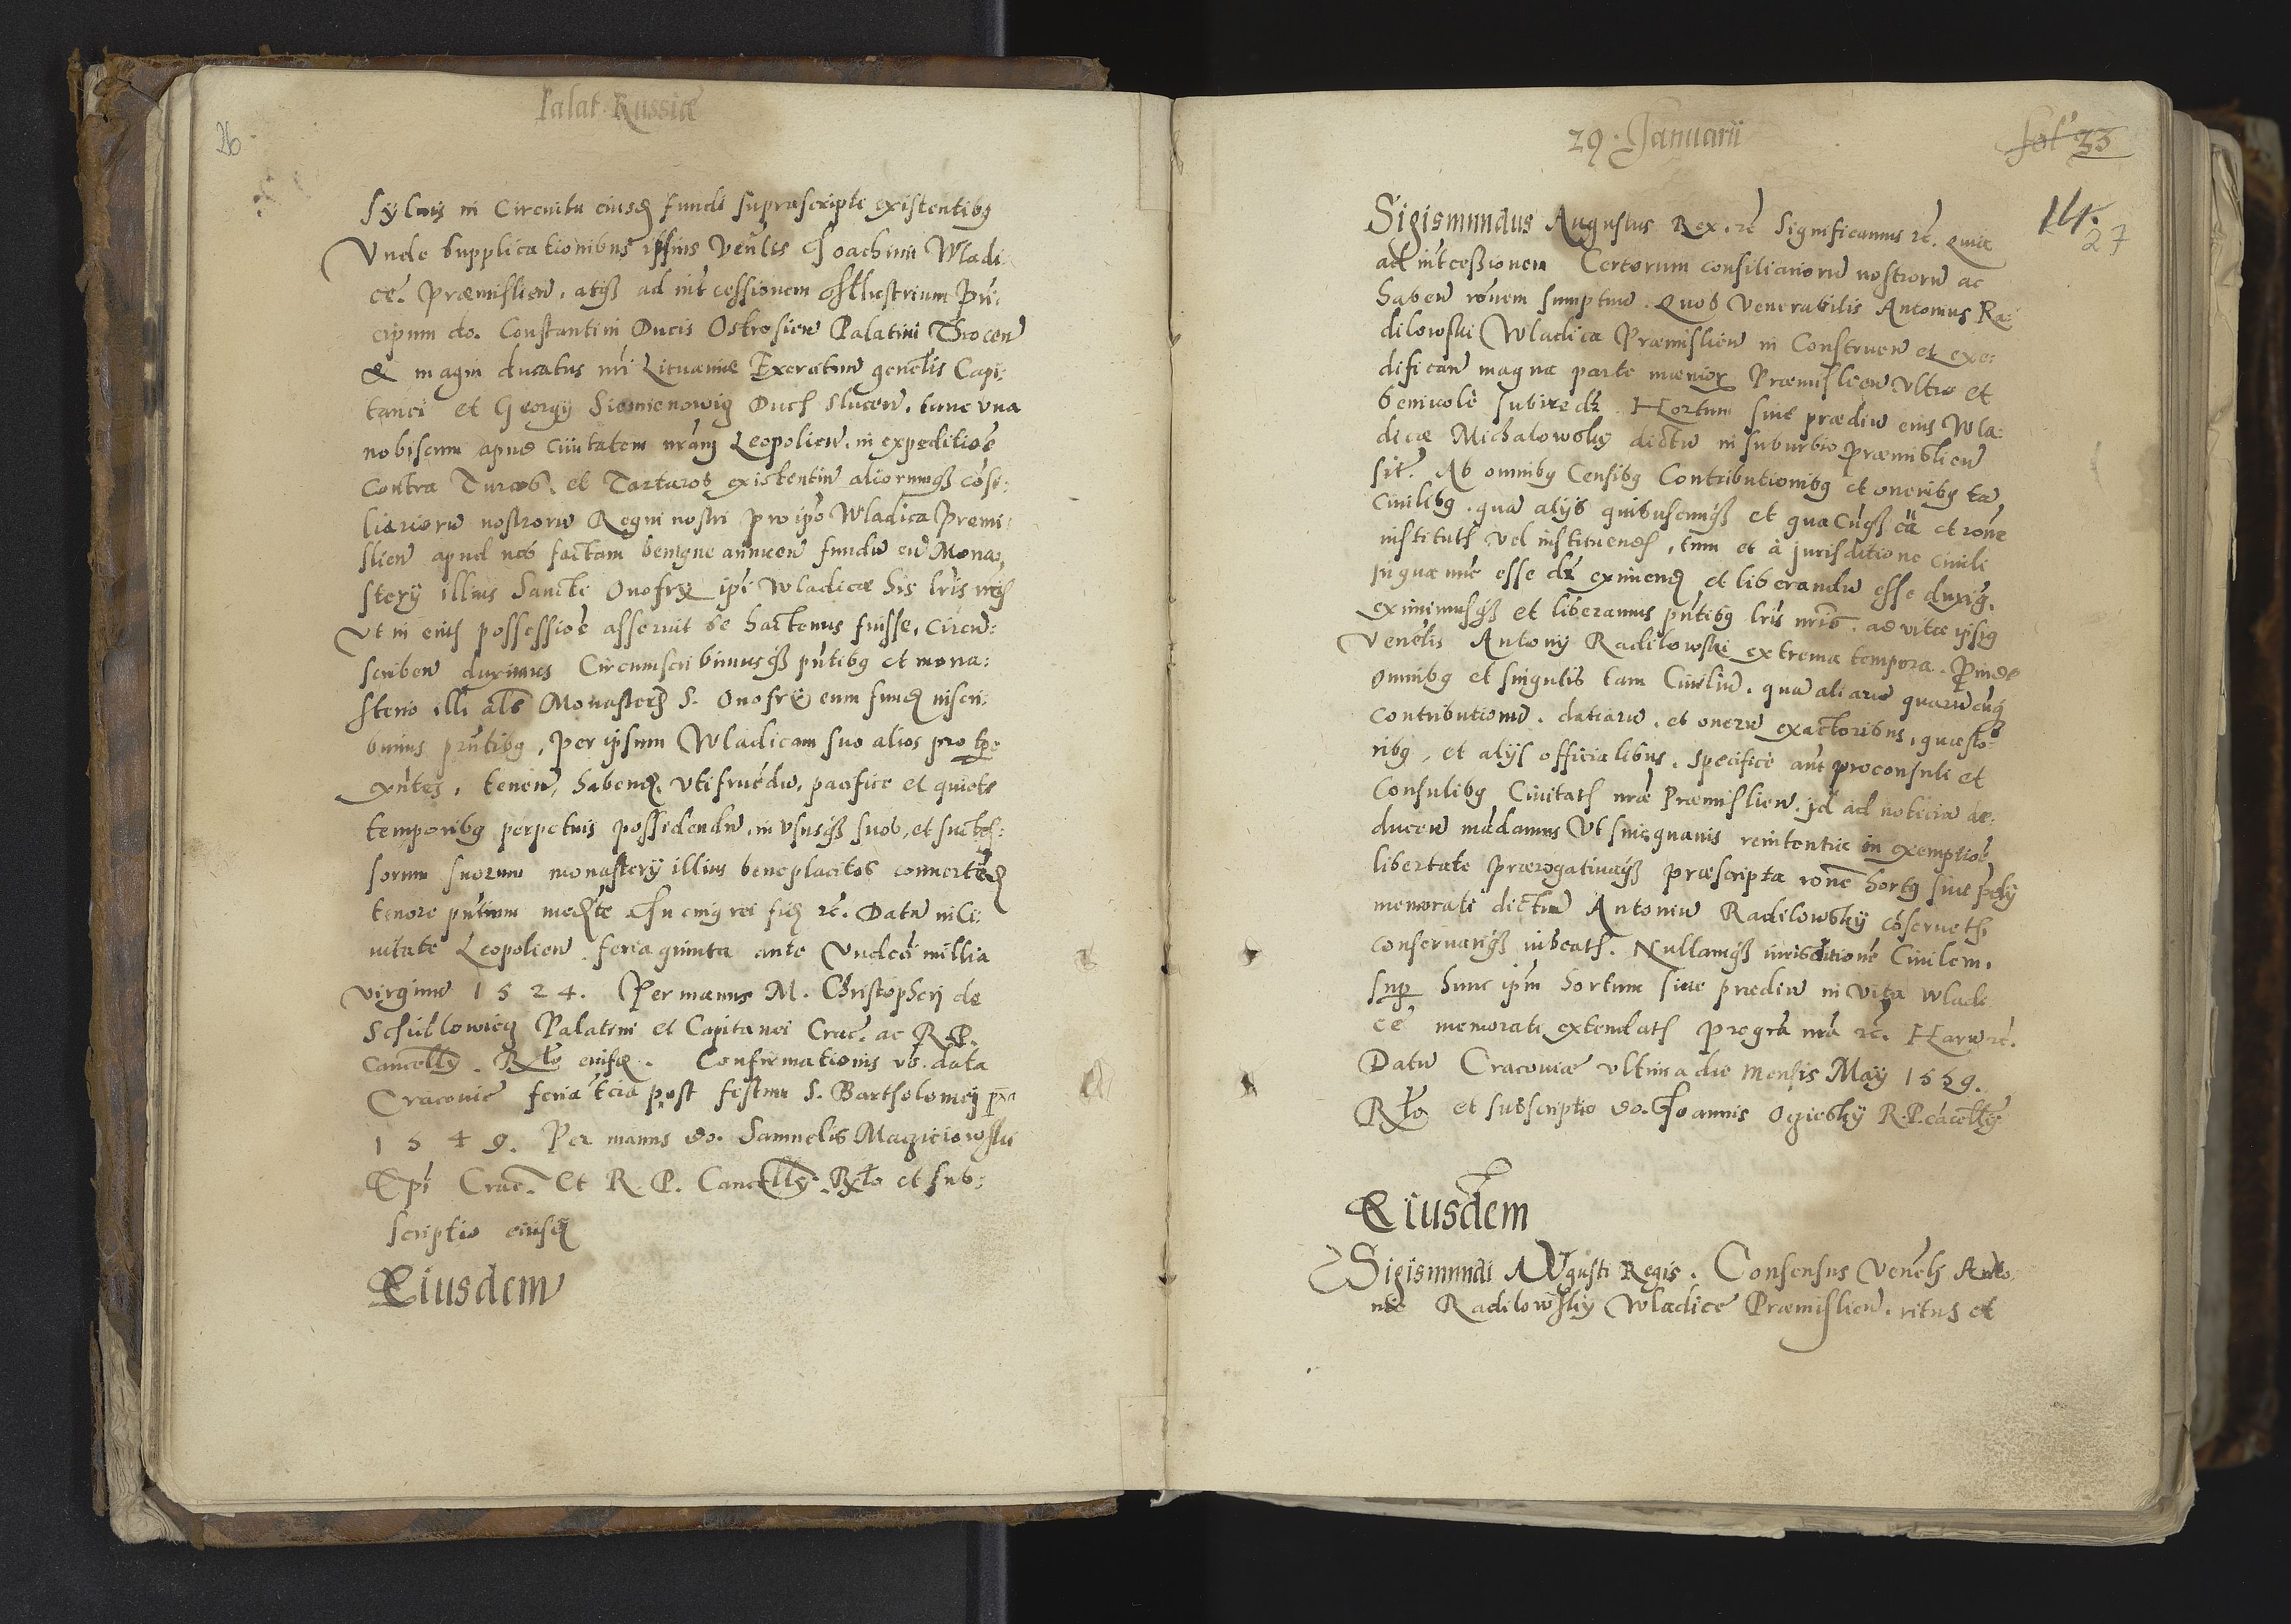 Palat. Russiæ
26
syluis in Circuitu eiusd fundi supræscripti existentibq
Vnde supplicationibus ipsius Veñlis Joachimi Wladi:
cę. Præmislieñ. atqз ad int̃cessionem Illustrium Prĩ:
cipum do. Constantini Ducis Ostrosieñ Palatini Troceñ
& magni ducatus nr̃i Lituaniæ Exercituũ gener̃lis Capi:
tanei et Georgij Siemienowiq Ducis Sluceñ. tunc vna
nobiscum apud ciuitatem nr̃am Leopolieñ. in expeditiõe
contra Turcos. et Tartaros existentiũ aliorumqз cõsi:
liariorũ nostrorũ Regni nostri pro ipõ Wladica Premi:
slieñ apud nos factam benigne annueñ fundũ eũ Mona:
sterij illius Sancti Onofrij ipĩ Wladicæ his lr̃is nr̃is
Vt in eius possessiõe asseruit se hactenus fuisse, circũ:
scribeñ duximus Circumscribimusqз pñtibq et mona:
sterio illi als Monasterӡ S. Onofrij eum fundӡ inscri:
bimus pñtibq, per ipsum Wladicam suo alios pro tpe
exñtes, teneñ, habendӡ. vtifruẽdũ, pacifice et quiete
temporibq perpetuis possidendũ. in vsusqз suos, et succes:
sorum suorum monasterij illius beneplacitos conuertẽdӡ
tenore pñtium medĩte In cuiq rei fidӡ rc̃. Datũ in Ci:
uitate Leopolieñ feria quinta ante Vndeci millia
virginũ 1524. Per manus M. Christopheri de
Schidlowicz Palatini et Capitanei Crac̃. ac R. P.
Cancellӡ. Rl̃o eiusdӡ. Confirmationis vo. data
Cracouiæ feria tẽcia post festum S. Bartholomei px̃a
1549. Per manus do. Samuelis Macieiowski
Epĩ Crac̃. Et R. P. Cancellӡ. Rl̃o et sub:
scriptio eiusdӡ
Eiusdem
29. Januarii
fol' 33
14.
27
Sigismundus Augustus Rex. rc̃ Significamus rc̃. Quia
ad int̃cessionem Certorum consiliariorũ nostrorũ ac
habeñ rõnem sumptuũ. Quos Venerabilis Antonius Ra:
dilowski Wladica Præmislieñ in Construeñ et exę:
dificañ magna parte mæniorӡ Præmislieñ vltro et
beniuolẽ subire dӡ. Hortum siue prædiũ eius Wla:
dicæ Michalowsky dictũ in suburbio Præmislieñ
sit̃. Ab omnibq Censibq Contributionibq et oneribq tã
ciuilibq. quã alijs quibuscunqз et quacũqз cã et rõne
institutis vel instituendis, tum et à jurisditione ciuili
in qua nũc esse dӡ eximendӡ et liberandũ esse duxiq.
eximimusqз et liberamus pñtibq lr̃is nr̃is. ad vitæ ipsiq
Veñlis Antonij Radilowski extrema tempora. Proinde
omnibq et singulis tam Ciuiliũ. quã aliarũ quarũcũq
contributionũ. datiarũ. et onerũ exactoribus, quæsto:
ribq, et alijs officialibus. specifice aut̃ proconsuli et
Consulibq Ciuitatis nr̃æ Præmislieñ. id ad noticiã de:
duceñ mãdamus Vt suis quamis reintentiæ in exemptiõe
libertate prærogatiuaqз præscripta rõne hortq siue pr̃dij
memorati dictũ Antoniũ Radilowsky cõseruetis
conseruariqз iubeatis. Nullamqз iurisditionẽ Ciuilem.
sup̱ hunc ip̃m hortum siue prædiũ in vita wladi
cę memorati extendatis pro gr̃a nr̃a rc̃. Harũ rc̃.
Datũ Cracouiæ vltima die mensis Maij 1559.
Rl̃o et subscriptio do. Joannis Ocziesky R. P. cãcellӡ
Eiusdem
Sigismundi Augusti Regis. Consensus Veñlis Anto
nio Radilowsky Wladicę Præmislieñ. ritus et